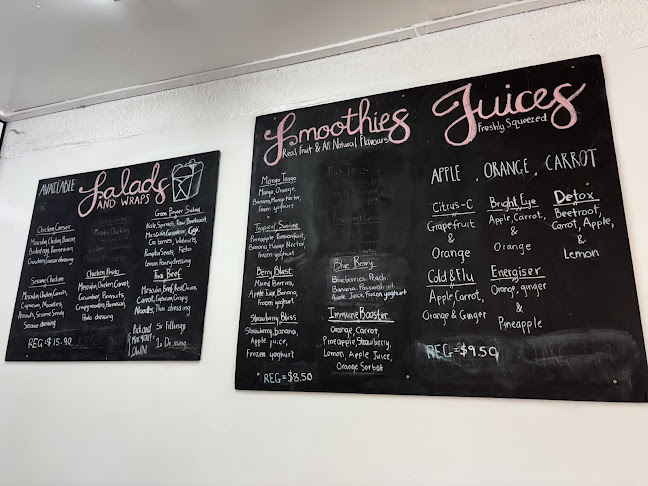 AVAILABLE
Salads
AND WRAPS
Chicken Caesar
Mesculin, Chicken, Bacon,
Boiled egg, Parmesan
Croutons, caesar dressing
Sesame Chicken
Mesculin, Chicken, Carrots,
Capsicum, Noodles,
Sesame Seeds
Sesame dressing
REG = $15.90
Chicken Pesto
Mesculin, Chicken, Carrot,
Cucumber, Peanuts,
Parmesan,
Pesto dressing
Green Power Salad
Kale, Spinach, Raw Beetroot,
Walnuts,
Pumpkin Seeds, Feta
Lemon honey dressing
Thai Beef
Mesculin, Beef,
Carrot, Capsicum, Crispy
Noodles, Thai dressing
OWN
5x Fillings
1x Dressing
Smoothies
Real Fruit & All Natural Flavours
Mango Tango
Mango, Orange,
Banana, Mango Nectar,
Frozen yoghurt
Tropical Sunrise
Pineapple, Passionfruit,
Banana, Mango Nectar,
Frozen yoghurt
Berry Blast
Mixed Berries,
Apple Juice, Banana,
Frozen yoghurt
Strawberry Bliss
Strawberry, banana,
Apple juice,
Frozen yoghurt
REG = $8.50
Blue Berry
Blueberries, Peach
Banana, Passionfruit
Apple Juice, frozen yoghurt
Immune Booster
Orange, Carrot,
Pineapple, Strawberry,
Lemon, Apple Juice,
Orange Sorbet
Juices
Freshly Squeezed
APPLE, ORANGE, CARROT
Citrus-C
Grapefruit
&
Orange
Cold & Flu
Apple, Carrot,
Orange & Ginger
Bright Eye
Apple, Carrot,
&
Orange
Energiser
Orange, ginger
&
Pineapple
Detox
Beetroot,
Carrot, Apple,
&
Lemon
REG = $9.50